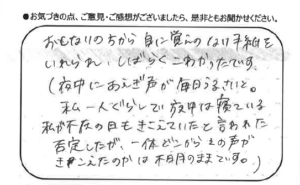 ●お気づきの点、ご意見・ご感想がございましたら、是非ともお聞かせください。
おとなりの方から身に覚えのない手紙を
いれられ、しばらくこわかったです。
(夜中にあえぎ声が毎日うるさいと。
私一人ぐらしで夜中は寝ている
私が不在の日もきこえていたと言われた
否定したが、一体どこからその声が
きこえたのかは不明のままです。)